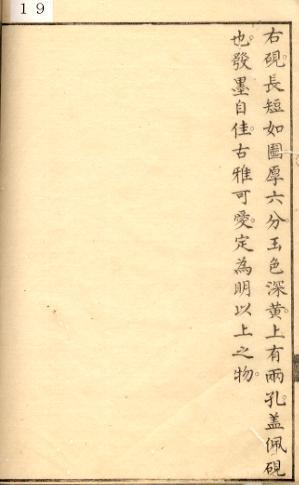 19
右硯。長短如圖厚六分玉色深黄。上有兩孔。盖佩硯
也。發墨自佳。古雅可愛。定為明以上之物。